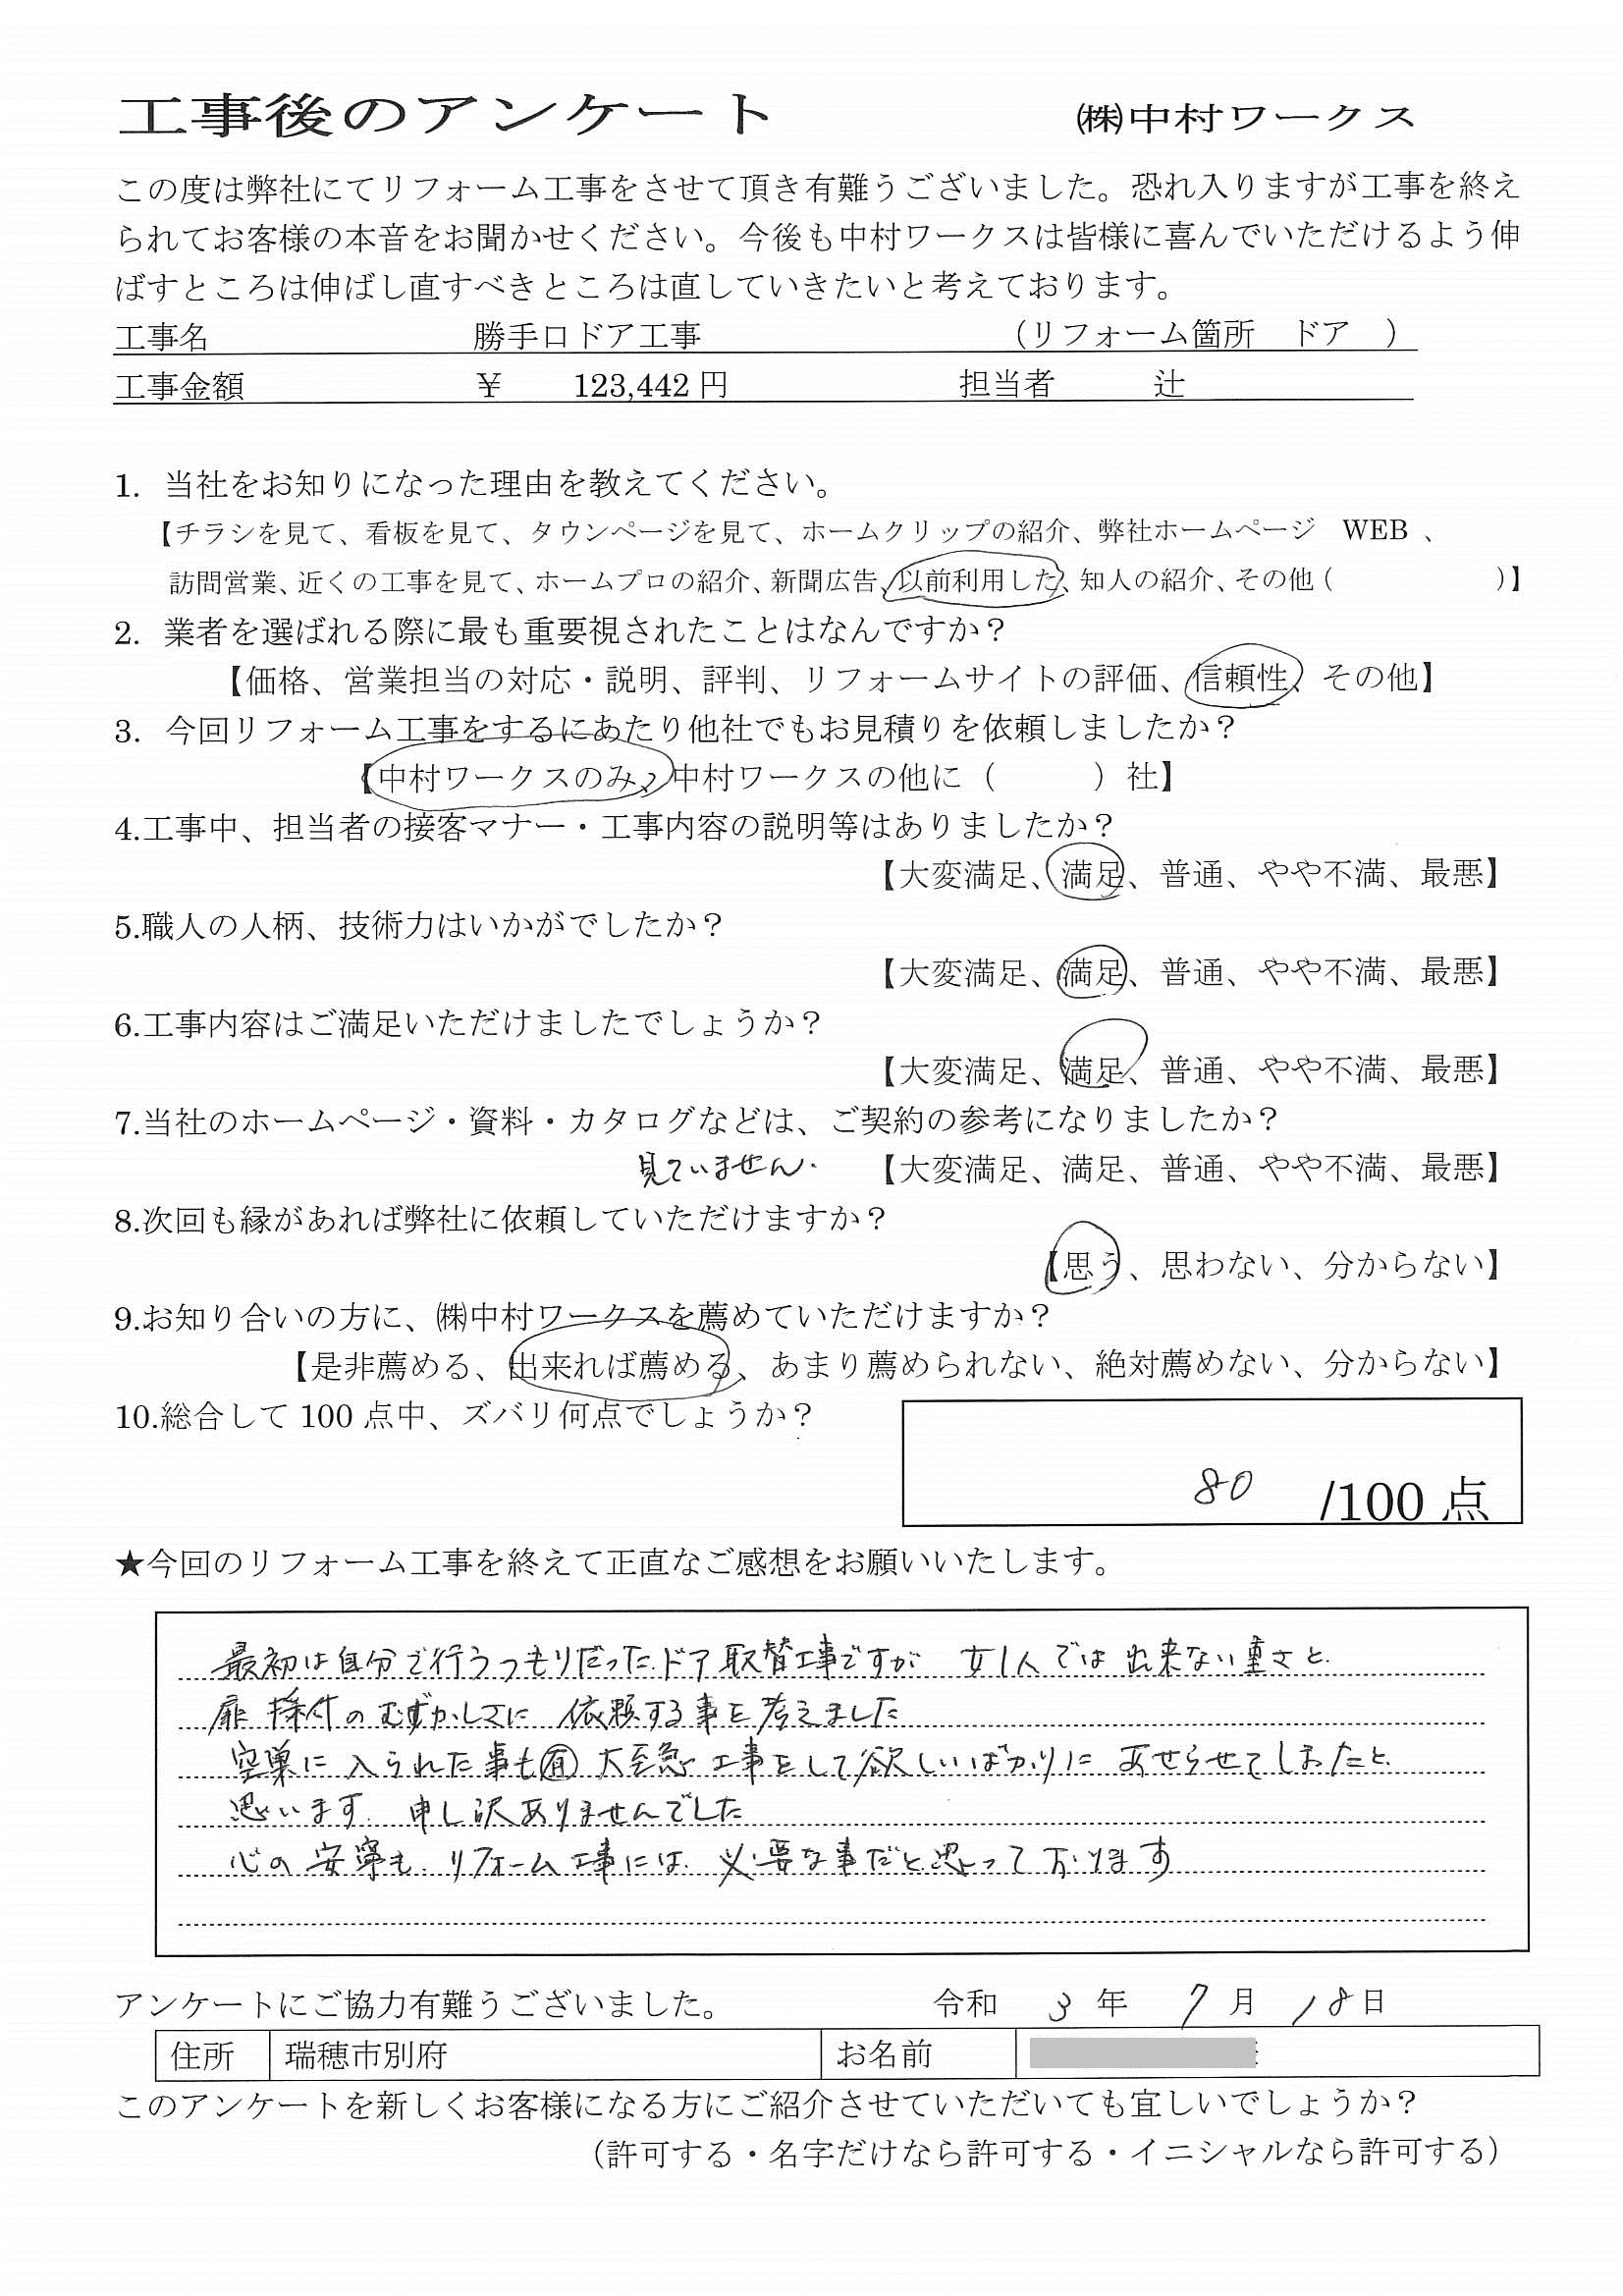 工事後のアンケート　㈱中村ワークス
この度は弊社にてリフォーム工事をさせて頂き有難うございました。恐れ入りますが工事を終え
られてお客様の本音をお聞かせください。今後も中村ワークスは皆様に喜んでいただけるよう伸
ばすところは伸ばし直すべきところは直していきたいと考えております。
工事名　勝手口ドア工事　（リフォーム箇所　ドア　）
工事金額　￥　123,442 円　担当者　辻
1. 当社をお知りになった理由を教えてください。
【チラシを見て、看板を見て、タウンページを見て、ホームクリップの紹介、弊社ホームページ　WEB 、
訪問営業、近くの工事を見て、ホームプロの紹介、新聞広告、以前利用した、知人の紹介、その他（　　　）】
2. 業者を選ばれる際に最も重要視されたことはなんですか？
【価格、営業担当の対応・説明、評判、リフォームサイトの評価、信頼性、その他】
3. 今回リフォーム工事をするにあたり他社でもお見積りを依頼しましたか？
【中村ワークスのみ、中村ワークスの他に（　　　）社】
4.工事中、担当者の接客マナー・工事内容の説明等はありましたか？
【大変満足、満足、普通、やや不満、最悪】
5.職人の人柄、技術力はいかがでしたか？
【大変満足、満足、普通、やや不満、最悪】
6.工事内容はご満足いただけましたでしょうか？
【大変満足、満足、普通、やや不満、最悪】
7.当社のホームページ・資料・カタログなどは、ご契約の参考になりましたか？
見ていません.　【大変満足、満足、普通、やや不満、最悪】
8.次回も縁があれば弊社に依頼していただけますか？
【思う、思わない、分からない】
9.お知り合いの方に、㈱中村ワークスを薦めていただけますか？
【是非薦める、出来れば薦める、あまり薦められない、絶対薦めない、分からない】
10.総合して 100 点中、ズバリ何点でしょうか？
80　/100 点
★今回のリフォーム工事を終えて正直なご感想をお願いいたします。
最初は自分で行うつもりだったドア取替工事ですが 女1人では出来ない重さと
扉 採付のむずかしさに 依頼する事を考えました
空巣に入られた事も㊒ 大至急 工事をして欲しいばかりに あせらせてしまったと
思います. 申し訳ありませんでした
心の安寧も リフォーム工事には 必要な事だと思っております
アンケートにご協力有難うございました。　令和　3　年　7　月　18日
住所　瑞穂市別府　お名前
このアンケートを新しくお客様になる方にご紹介させていただいても宜しいでしょうか？
（許可する・名字だけなら許可する・イニシャルなら許可する）